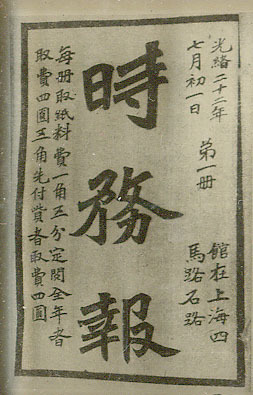 光緒二十二年
七月初一日 第一冊
館在上海四
馬路石路
時務報
每册取紙料費一角五分定閱全年者
取費四圓三角先付貲者取費四圓